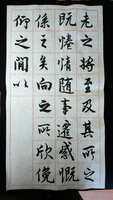 老之將至及其所之
既惓情隨事遷感慨
係之矣向之所欣俛
仰之閒以